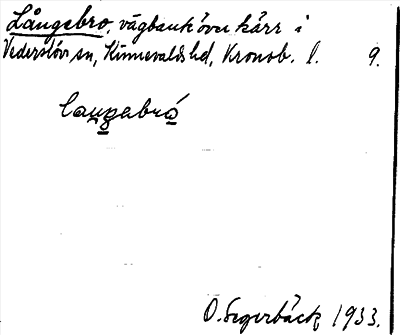 Långebro, vägbank över kärr i
Vederslöv sn, Kinnevalds hd, Kronob. l. 9.
laugabrå
O. Segerbäck 1933.